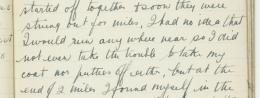 started off together & soon they were
strung out for miles, I had no idea that
I would run any where near so I did
not even take the trouble to take my
coat nor putties off either, but at the
end of 2 miles I found myself in the